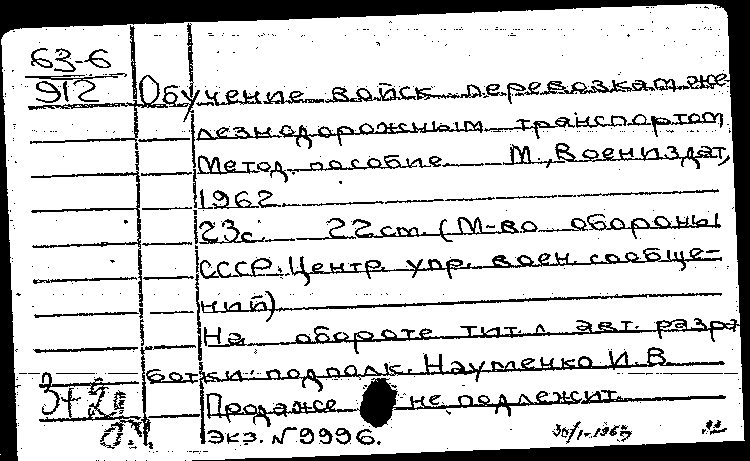 63-6
912
Обучение войск перевозкам же
лезнодорожным транспортом
Метод. пособие М., Воениздат,
1962
23с. 22 см. (М-во обороны
СССР. Центр. упр. воен. сообще-
ний)
На обороте тит. л. авт. разра
ботки: подполк. Науменко И. В.
Продаже не подлежит.
экз. N 9996.
3+2д